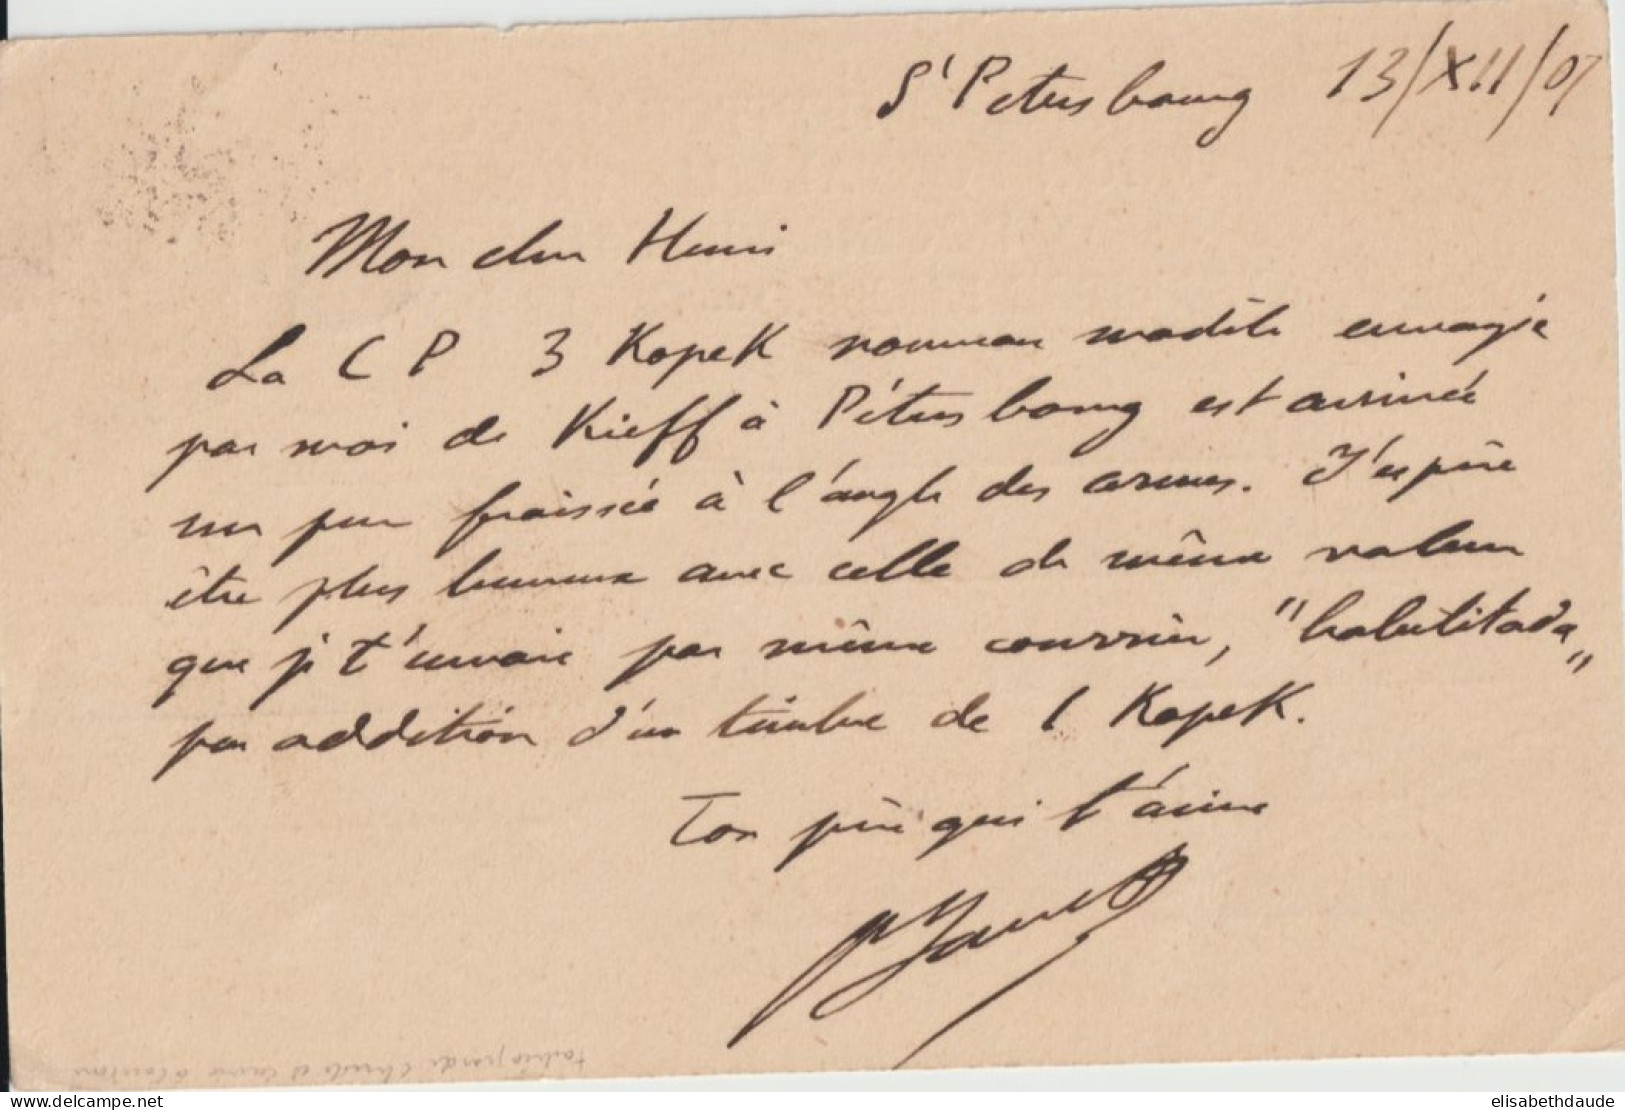 St Petersbourg 13/XII/07
Mon cher Henri
La C P 3 Kopek nouveau modèle envoyée
par moi de Kieff à Pétersbourg est arrivée
un peu froissée à l'angle des armes. J'espère
être plus heureux avec celle de même valeur
que je t'envoie par même courrier, "habilitada"
par addition d'un timbre de 1 Kopek.
Ton père qui t'aime
delcampe.net
elisabethdaude